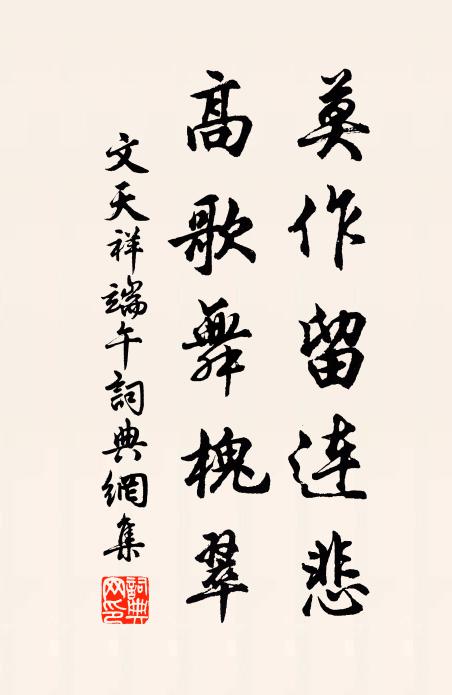 莫作留连悲
高歌舞槐翠
文天祥端午詞典網集
詞典
网印